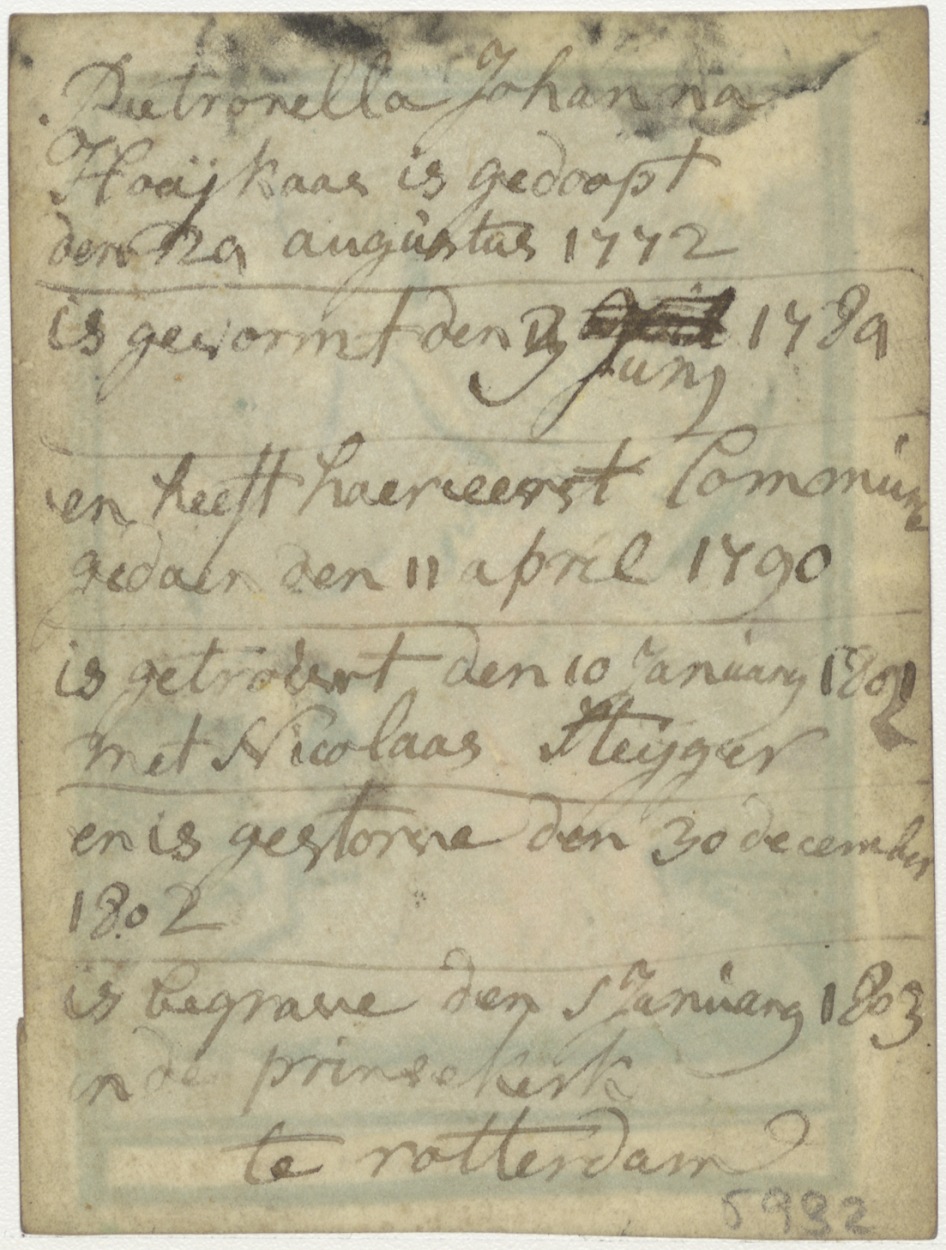 Pietronella Johanna
Haaijkaas is gedoopt
den 29 augustus 1772
is gevormt den 1789
Junij
en heeft haer eerst Commune
gedaen den 11 april 1790
is getrouwt den 10 Januarij 1802
met Nicolaas Steijger
en is gestorve den 30 december
1802
is begrave den 5 Januarij 1803
in de prinsekerk
te rotterdam
5932